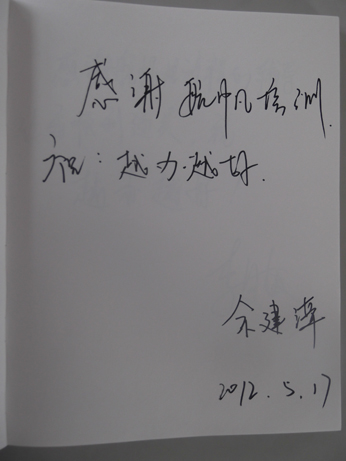 感谢 培训.
祝：越办越好.
余建
2012.5.17